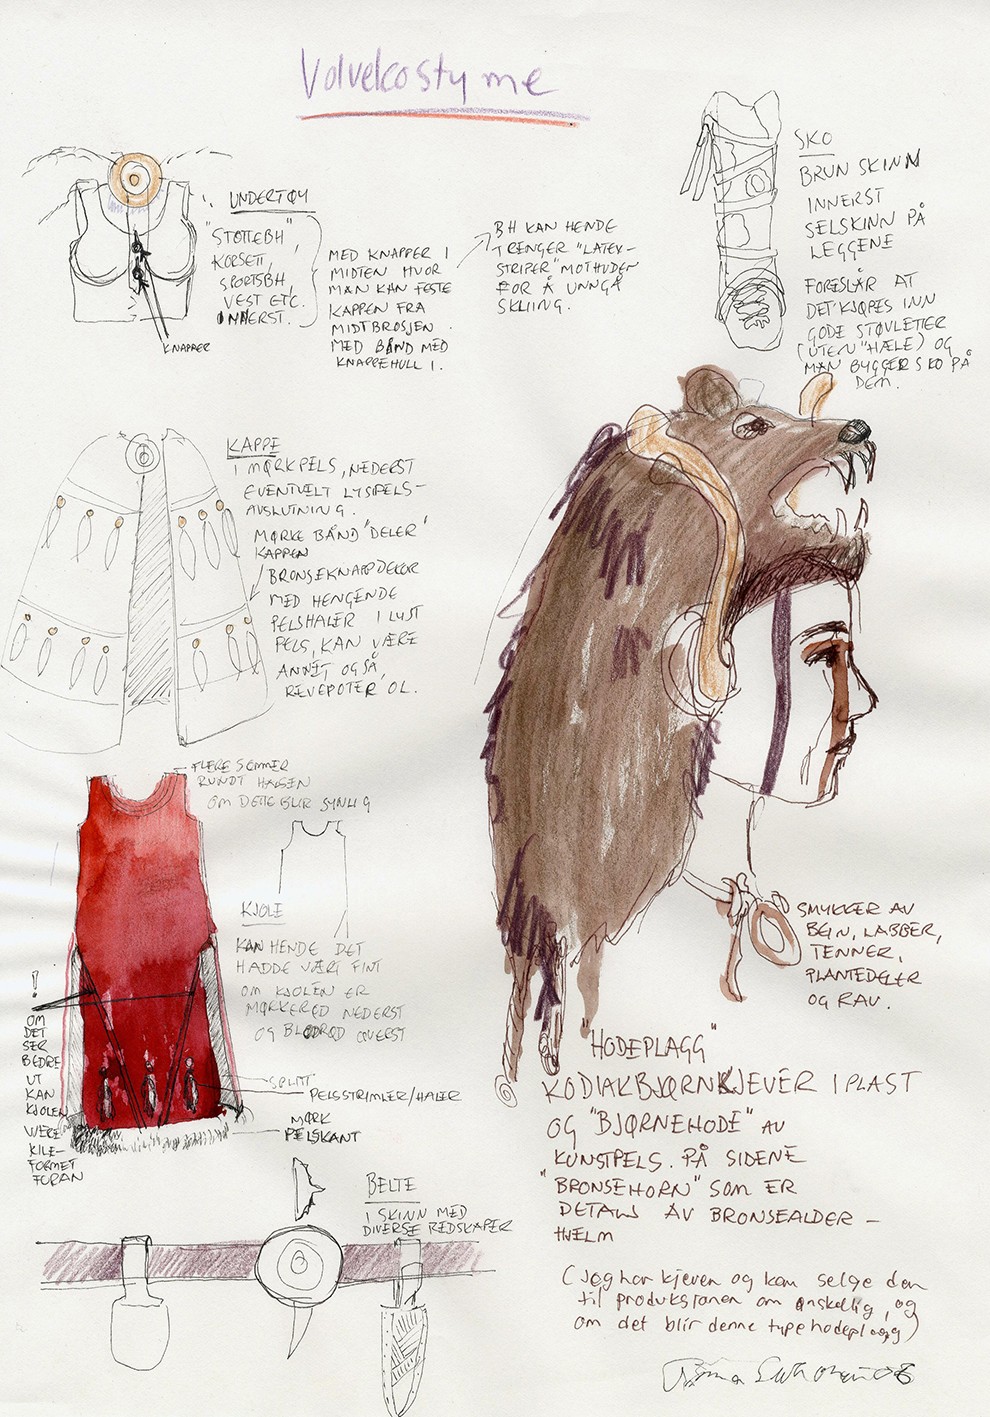 Volvekostyme
UNDERTØY
"STØTTEBH",
KORSETT,
SPORTSBH,
VEST ETC.
INNERST.
KNAPPER
MED KNAPPER I
MIDTEN HVOR
MAN KAN FESTE
KAPPEN FRA
MIDTBROSJEN.
MED BÅND MED
KNAPPEHULL I.
BH KAN HENDE
TRENGER "LATEX-
STRIPER" MOT HUDEN
FOR Å UNNGÅ
SKLIING.
SKO
BRUN SKINN
INNERST
SELSKINN PÅ
LEGGENE
FORESLÅR AT
DET KJØPES INN
GODE STØVLETTER
(UTEN "HÆLE) OG
MAN BYGGER SKO PÅ
DEM.
KAPPE
I MØRK PELS, NEDERST
EVENTUELT LYS PELS-
AVSLUTNING.
MØRKE BÅND "DELER"
KAPPEN
BRONSEKNAPPDEKOR
MED HENGENDE
PELSHALER I LYST
PELS, KAN VÆRE
ANNET OGSÅ,
REVEPOTER OL.
FLERE SØMMER
RUNDT HALSEN
OM DETTE BLIR SYNLIG
KJOLE
KAN HENDE DET
HADDE VÆRT FINT
OM KJOLEN ER
MØRKERØD NEDERST
OG BLODRØD ØVERST
!
OM
DET
SER
BEDRE
UT
KAN
KJOLEN
VÆRE
KILE-
FORMET
FORAN
SPLITT
PELSSTRIMLER/HALER
MØRK
PELSKANT
SMYKKER AV
BEIN, LABBER,
TENNER,
PLANTEDELER
OG RAV.
"HODEPLAGG"
KODIAKBJØRNKJEVER I PLAST
OG "BJØRNEHODE" AV
KUNSTPELS. PÅ SIDENE
"BRONSEHORN" SOM ER
DETALJ AV BRONSEALDER-
HJELM
(Jeg har kjeven og kan selge den
til produksjonen om ønskelig, og
om det blir denne type hodeplagg)
BELTE
I SKINN MED
DIVERSE REDSKAPER